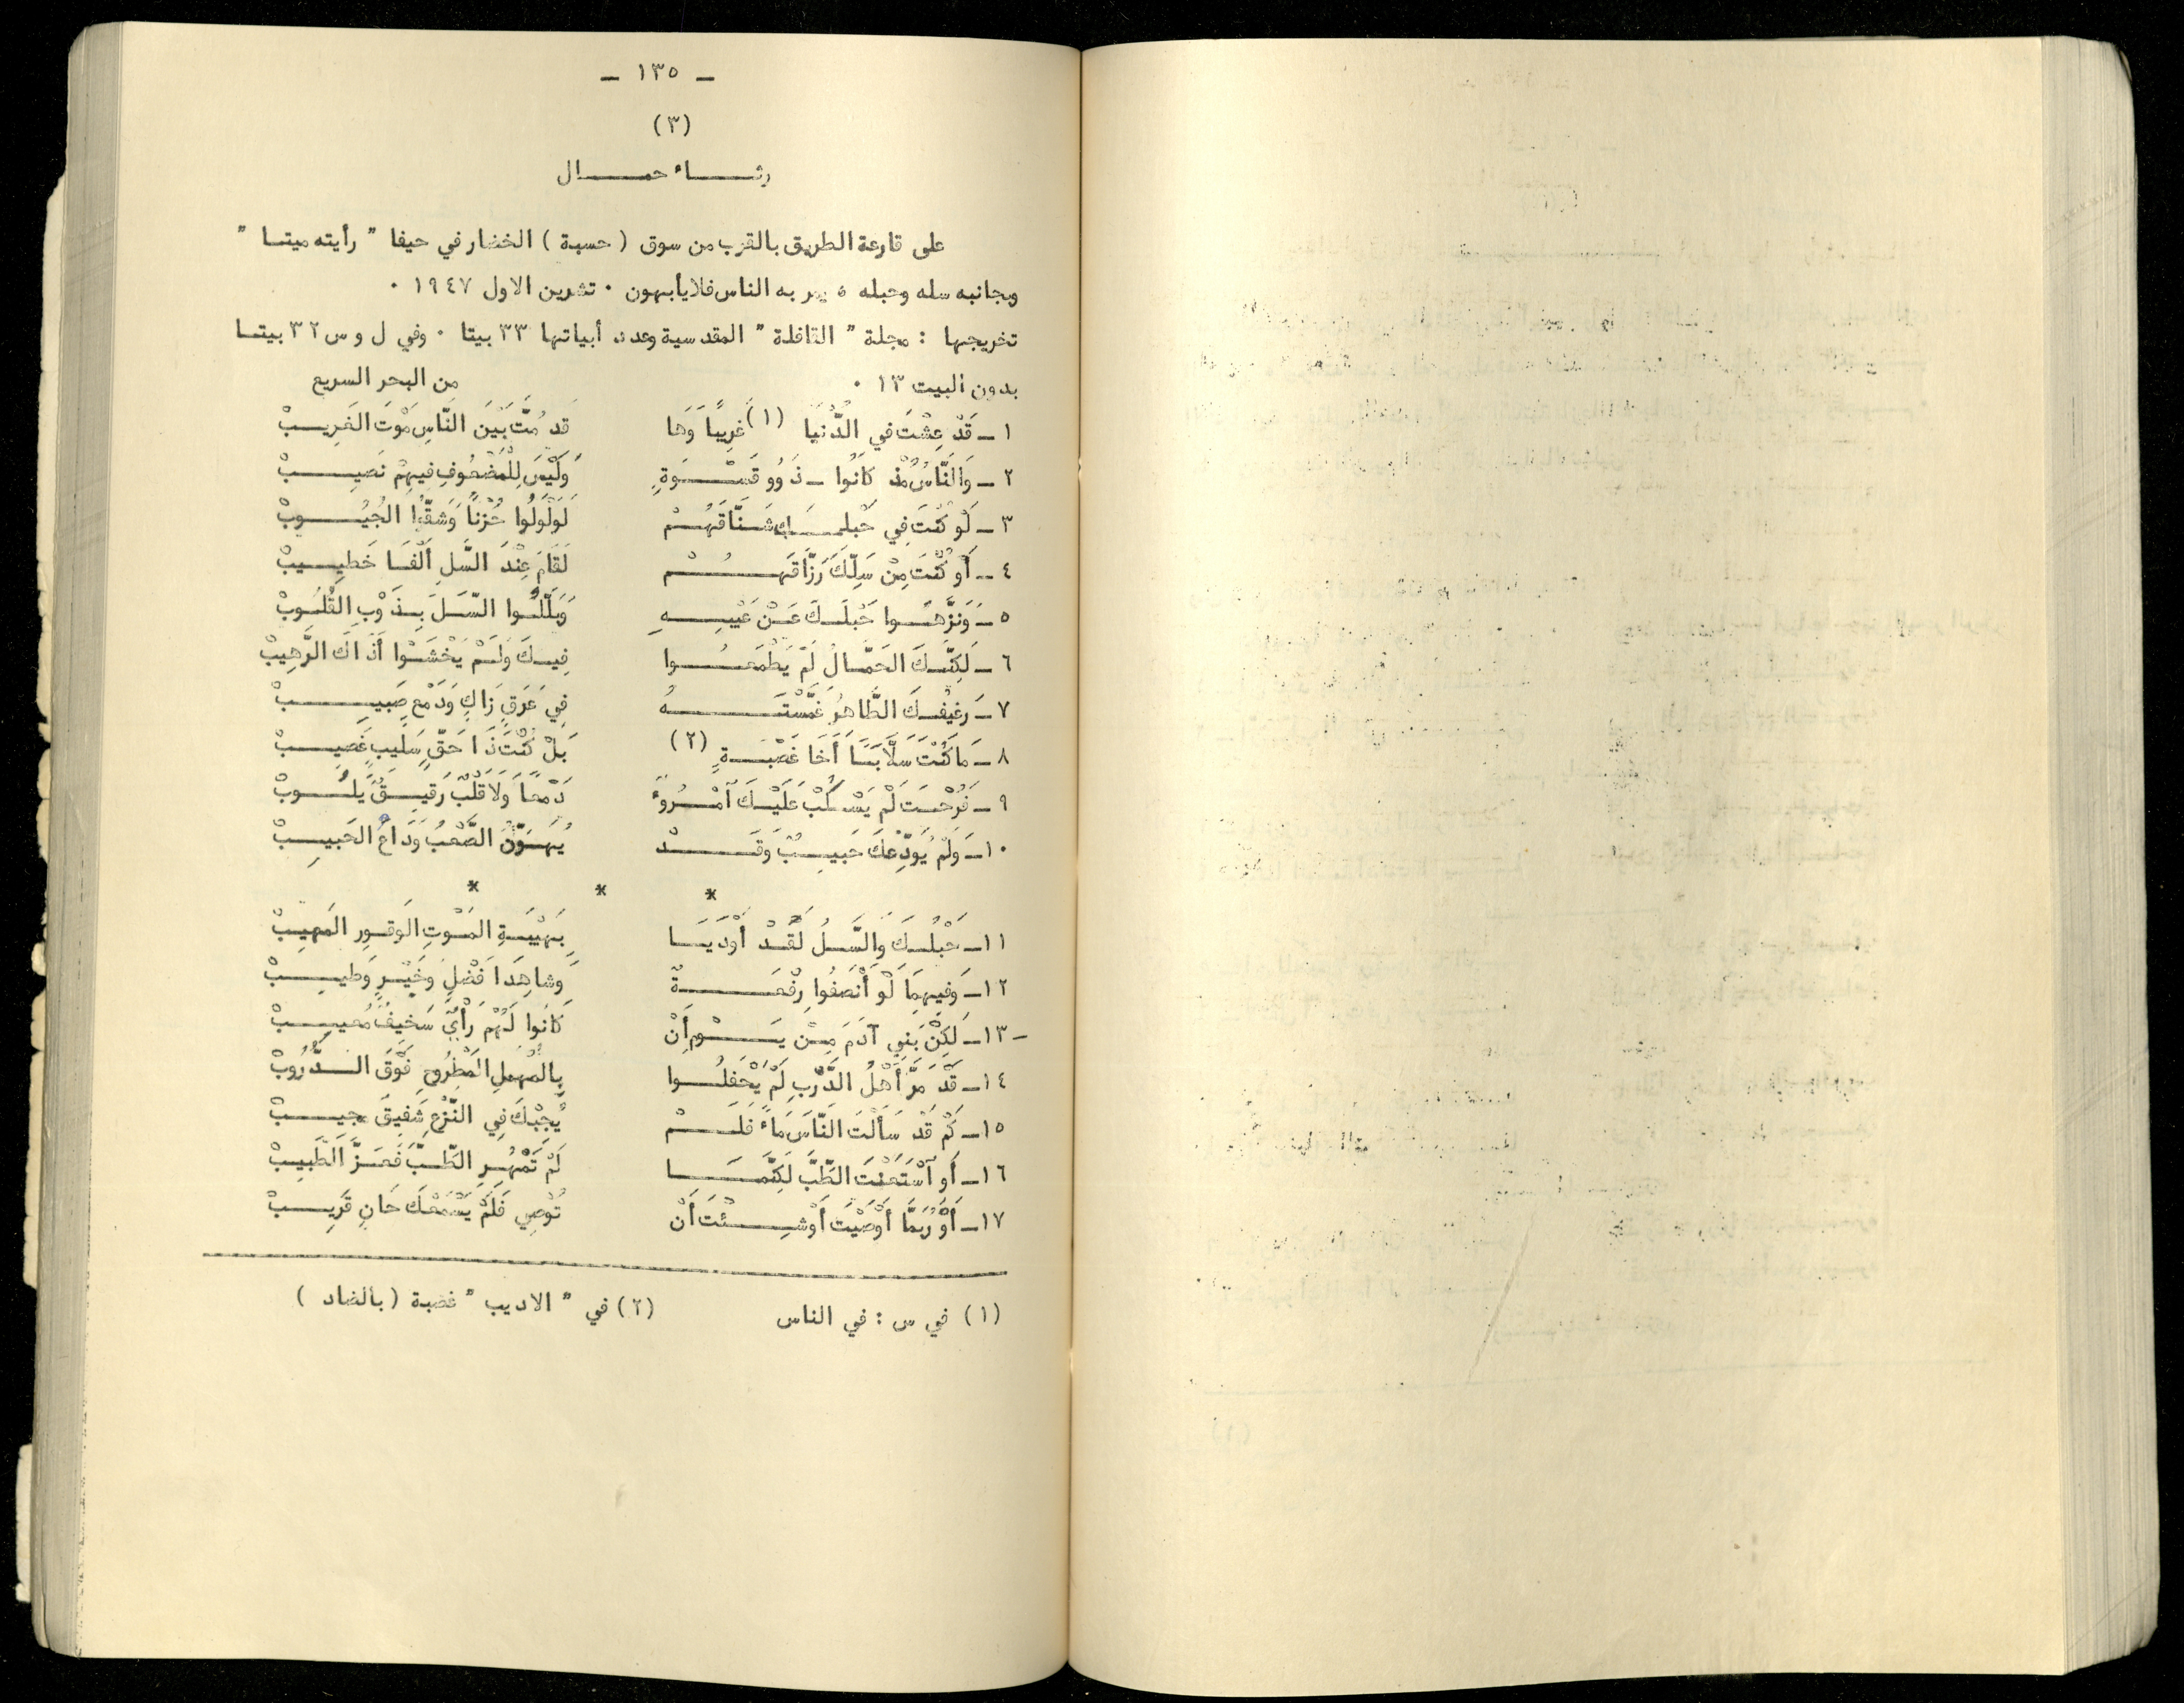 - ١٣٥ -
(٣)
رثاء حمال
على قارعة الطريق بالقرب من سوق (حسبة) الخضار في حيفا " رأيته ميتا "
وبجانبه سله وحبله ، يمر به الناس فلا يأبهون ٠ تشرين الاول ١٩٤٧ ٠
تخريجها : مجلة " القافلة " المقدسية وعدد أبياتها ٣٣ بيتا ٠ وفي ل و س ٣٢ بيتا
بدون البيت ١٣ ٠ من البحر السريع
١ـ قَدْ عِشْتَ في الدُّنْيَا (١) غَرِيبًا وَهَا قَد مُتَّ بَيْنَ النَّاسِ مَوْتَ الغَرِيبْ
٢ـ وَالنَّاسُ مُذْ كَانُوا ـ ذَوُو قَسْوَةٍ وَلَيْسَ لِلْمَضْعُوفِ فِيهِمْ نَصِيبْ
٣ـ لَوْ كُنْتَ فِي حَبْلِكَ شَنَّاقَهُمْ لَوَلْوَلُوا حُزْناً وَشَقُّوا الجُيُوبْ
٤ـ أَوْ كُنْتَ مِنْ سَلِّكَ رَزَّاقَهُمْ لَقَامَ عِنْدَ السَّلِ أَلْفَا خَطِيبْ
٥ـ وَنَزَّهُوا حَبْلَكَ عَنْ عَيْبِهِ وَبَلَّلُوا السَّلَ بِذَوْبِ القُلُوبْ
٦ـ لَكِنَّكَ الحَمَّالُ لَمْ يَطْمَعُوا فِيكَ وَلَمْ يَخْشَوْا أَذَاكَ الرَّهِيبْ
٧ـ رَغِيفُكَ الطَّاهِرُ غَمَّسْتَهُ فِي عَرَقٍ زَاكٍ وَدَمْعٍ صَبِيبْ
٨ـ مَا كُنْتَ سَلَّابَاً أَخَا غَصْبَةٍ (٢) بَلْ كُنْتَ ذَا حَقٍّ سَلِيبٍ غَصِيبْ
٩ـ فَرُحْتَ لَمْ يَسْكُبْ عَلَيْكَ آمْرُوءٌ دَمْعَاً وَلَا قَلْبٌ رَقِيقٌ يَلُوبْ
١٠ـ وَلَمْ يُوَدِّعْكَ حَبِيبٌ وَقَدْ يُهَوِّنُ الصَّعْبَ وَدَاعُ الحَبِيبْ
* * *
١١ـ حَبْلُكَ وَالسَّلُ لَقَدْ أَوْدَيَا بِهَيْبَةِ المَوْتِ الوَقورِ المَهِيبْ
١٢ـ وَفِيهِمَا لَوْ أَنْصَفُوا رِفْعَةٌ وَشَاهِدَا فَضْلٍ وَخَيْرٍ وَطيبْ
١٣ـ لَكِنَّ بَنِي آدَمَ مِنْ يَوْمِ أَنْ كَانُوا لَهُمْ رَأْيٌ سَخِيفٌ مُعيبْ
١٤ـ قَدْ مَرَّ أَهْلُ الدَّرْبِ لَمْ يَحْفِلُوا بِالمُهْمَلِ المَطْرُوحِ فَوْقَ الدُّرُوبْ
١٥ـ كَمْ قَدْ سَأَلْتَ النَّاسَ مَاءً فَلَمْ يُجِبْكَ فِي النَّزْعِ شَفِيقٌ مجيبْ
١٦ـ أَو آسْتَعَنْتَ الطِّبَّ لَكِنَّمَا لَمْ تَمْهُرِ الطِّبَّ فَعَزَّ الطَّبِيبْ
١٧ـ أَوْ رُبَمَّا أَوْصَيْتَ أَوْ شِئْتَ أَنْ تُوصِي فَلَمْ يَسْمَعْكَ حَانٍ قَرِيبْ
(١) في س : في الناس (٢) في " الاديب " غضبة (بالضاد )